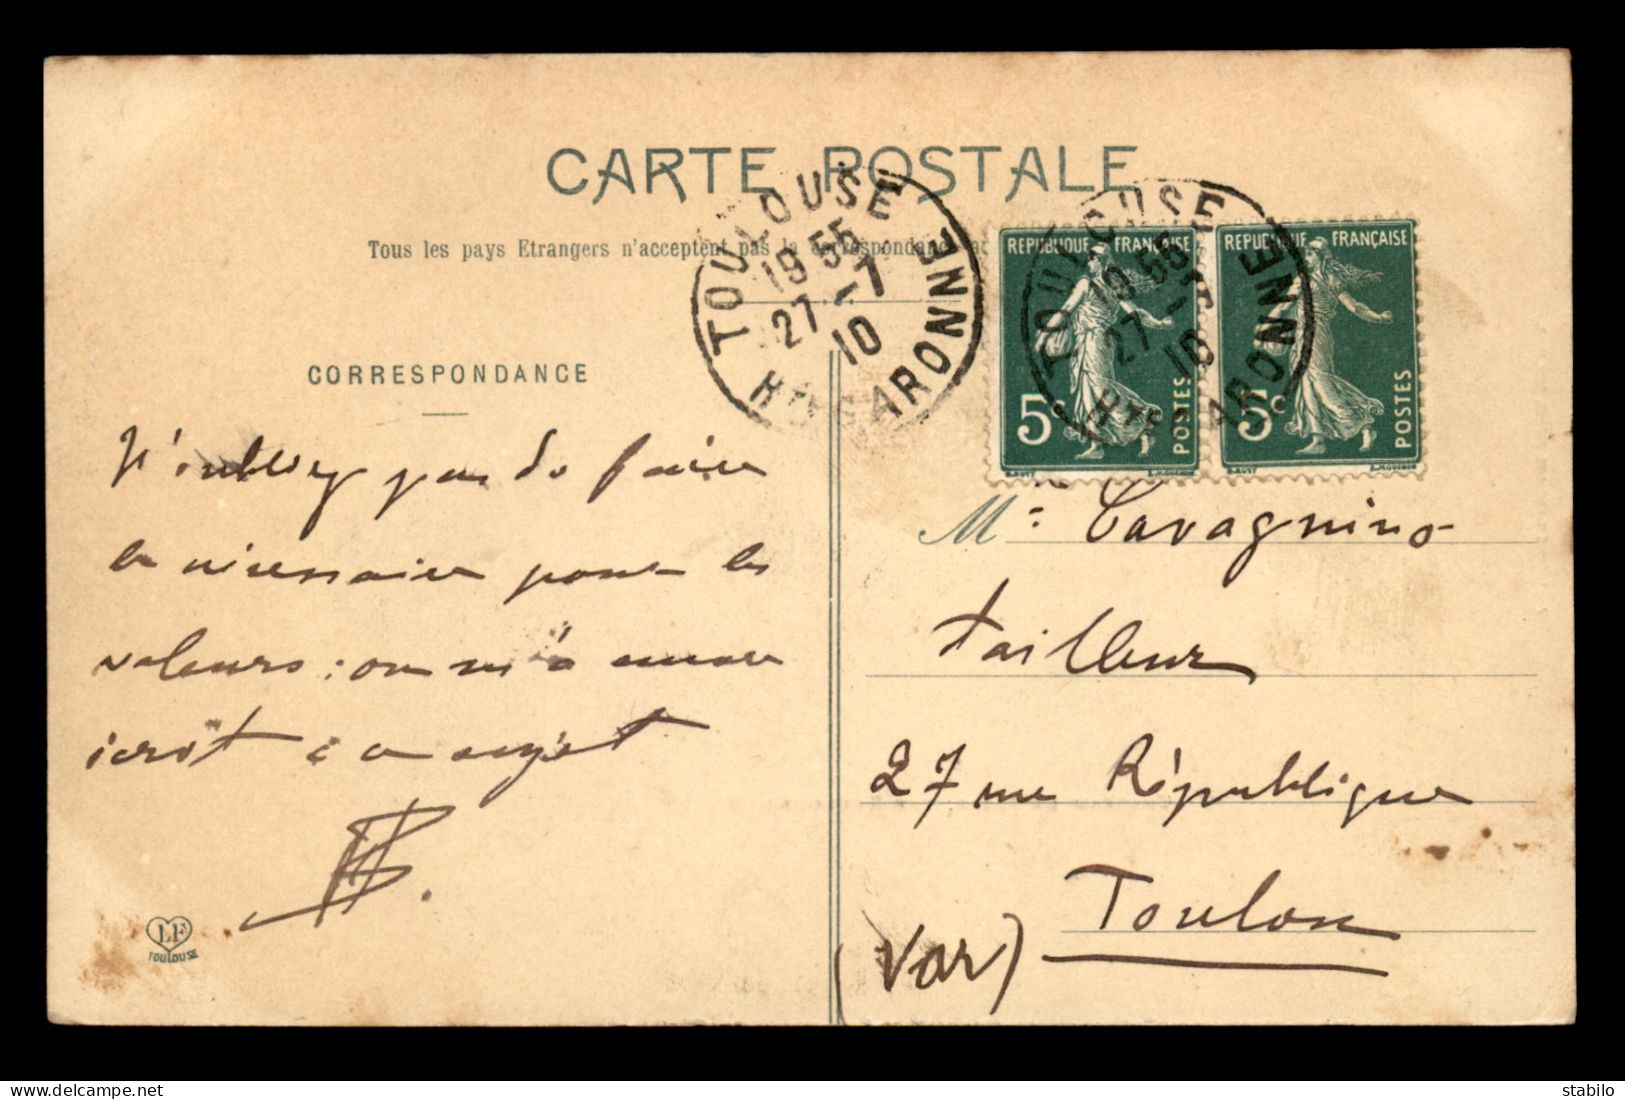 CARTE POSTALE
Tous les pays Etrangers n'acceptent pas la correspondance
TOULOUSE
19 55
27 - 7
10
Hte GARONNE
TOULOUSE
19 55
27 -
10
Hte GARONNE
REPUBLIQUE FRANÇAISE
5c
POSTES
REPUBLIQUE FRANÇAISE
5c
POSTES
CORRESPONDANCE
N'oubliez pas de faire
le nécessaire pour les
valeurs : on m'a encore
écrit à ce sujet
LF
TOULOUSE
Mr Cavagnino
tailleur
27 rue République
Toulon
(Var)
delcampe.net
stabilo